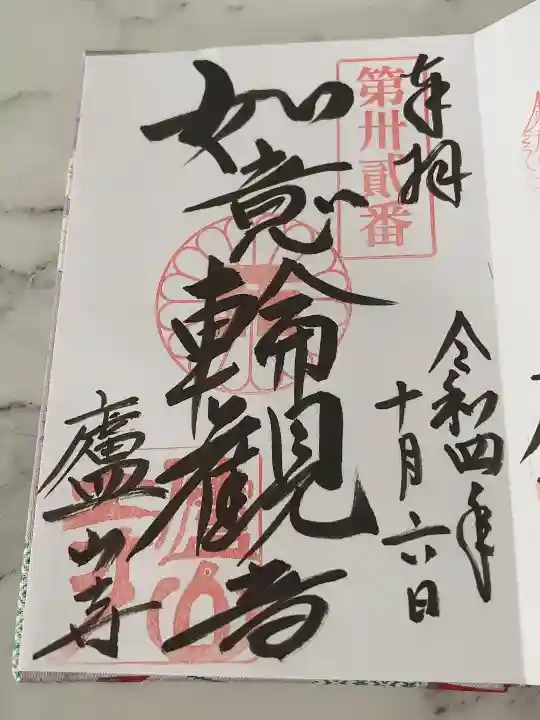 奉拝
第卅貳番
令和四年
十月六日
如意輪觀音
廬山寺